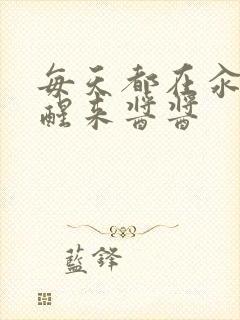 每天都在汆
醒来醬醬
藍鋒